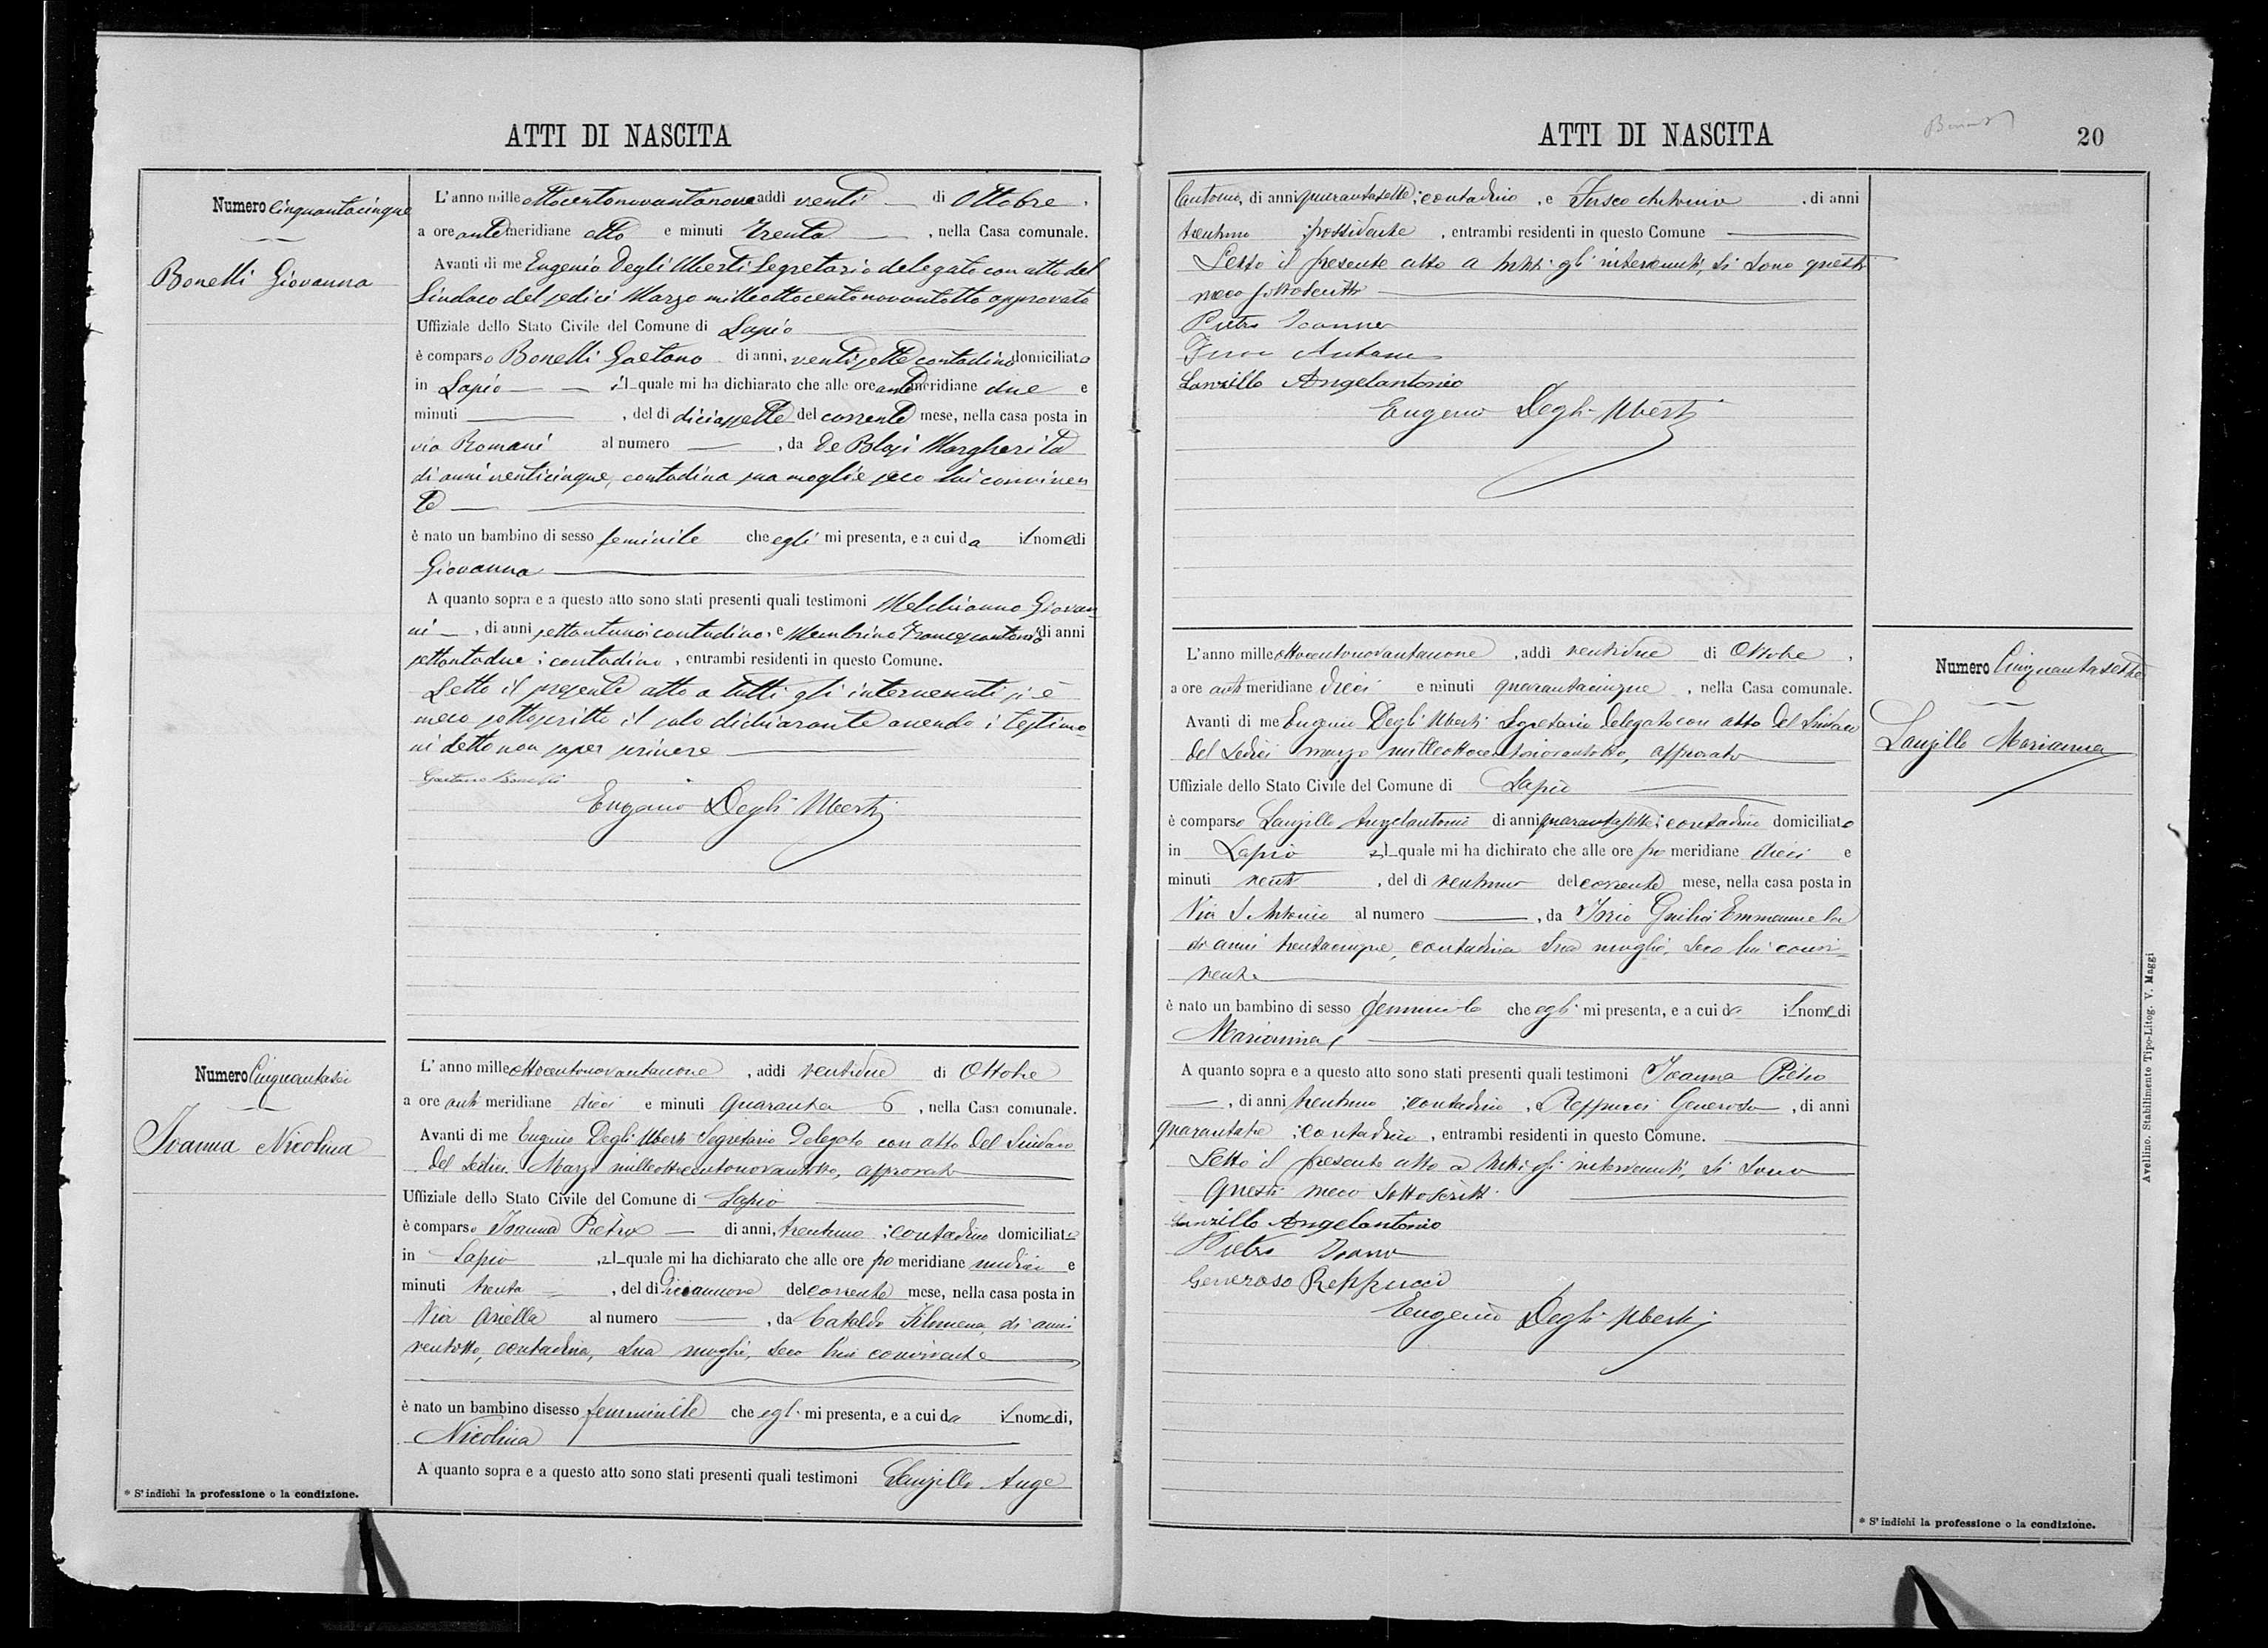 ATTI DI NASCITA
Numero cinquantacinque
Bonelli Giovanna
L'anno mille ottocentonovantanove addì venti di Ottobre,
a ore antimeridiane otto e minuti trenta, nella Casa comunale.
Avanti di me Eugenio Degli Uberti Segretario delegato con atto del
Sindaco del sedici Marzo milleottocentonovantotto approvato
Uffiziale dello Stato Civile del Comune di Lapio
è comparso Bonelli Gaetano di anni, ventisette contadino domiciliato
in Lapio il quale mi ha dichiarato che alle ore antimeridiane due e
minuti , del dì diciassette del corrente mese, nella casa posta in
via Romani al numero , da De Blasi Margherita
di anni venticinque, contadina sua moglie seco lui conviven
te
è nato un bambino di sesso feminile che egli mi presenta, e a cui da il nome di
Giovanna
A quanto sopra e a questo atto sono stati presenti quali testimoni Melchionna Giovan
ni , di anni settantuno; contadino, e Membrino Francescantonio di anni
settantadue; contadino, entrambi residenti in questo Comune.
Letto il presente atto a tutti gli intervenuti si è
meco sottoscritto il solo dichiarante avendo i testimo
ni detto non saper scrivere
Gaetano Bonelli
Eugenio Degli Uberti
Numero Cinquantasei
Ioanna Nicolina
L'anno mille ottocentonovantanove, addì ventidue di Ottobre
a ore anti meridiane dieci e minuti quaranta, nella Casa comunale.
Avanti di me Eugenio Degli Uberti Segretario Delegato con atto del Sindaco
del sedici Marzo milleottocentonovantotto, approvato
Uffiziale dello Stato Civile del Comune di Lapio
è comparso Ioanna Pietro di anni, trentuno; contadino domiciliato
in Lapio , il quale mi ha dichiarato che alle ore po meridiane undici e
minuti trenta , del dì Diciannove del corrente mese, nella casa posta in
Via Ariella al numero , da Cataldo Filomena, di anni
ventotto, contadina, sua moglie, seco lui convivente
è nato un bambino di sesso femminile che egli mi presenta, e a cui da il nome di,
Nicolina
A quanto sopra e a questo atto sono stati presenti quali testimoni Lanzillo Ange
* S'indichi la professione o la condizione.
ATTI DI NASCITA
20
lantonio, di anni quarantasette; contadino, e Fusco Antonio , di anni
trentuno ; possidente , entrambi residenti in questo Comune
Letto il presente atto a tutti gli intervenuti, si sono questi
meco sottoscritti
Pietro Ioanna
Fusco Antonio
Lanzillo Angelantonio
Eugenio Degli Uberti
Numero Cinquantasette
Lanzillo Marianna
L'anno mille ottocentonovantanove, addì ventidue di Ottobre,
a ore anti meridiane dieci e minuti quarantacinque , nella Casa comunale.
Avanti di me Eugenio Degli Uberti Segretario Delegato con atto del Sindaco
del sedici marzo milleottocentonovantotto, approvato
Uffiziale dello Stato Civile del Comune di Lapio
è comparso Lanzillo Angelantonio di anni quarantasette; contadino domiciliato
in Lapio il quale mi ha dichirato che alle ore po meridiane dieci e
minuti venti , del dì ventuno del corrente mese, nella casa posta in
Via S. Antonio al numero , da Iorio Giulia Emmanuela
di anni trentacinque, contadina sua moglie, seco lui convi-
vente
è nato un bambino di sesso femminile che egli mi presenta, e a cui da il nome di
Marianna
A quanto sopra e a questo atto sono stati presenti quali testimoni Ioanna Pietro
, di anni trentuno ; contadino, Reppucci Generoso , di anni
quarantatre ; contadino , entrambi residenti in questo Comune.
Letto il presente atto a tutti gli intervenuti, si sono
questi meco sottoscritti
Lanzillo Angelantonio
Pietro Ioanna
Generoso Reppucci
Eugenio Degli Uberti
* S'indichi la professione o la condizione.
Avellino. Stabilimento Tipo-Litog. V. Maggi